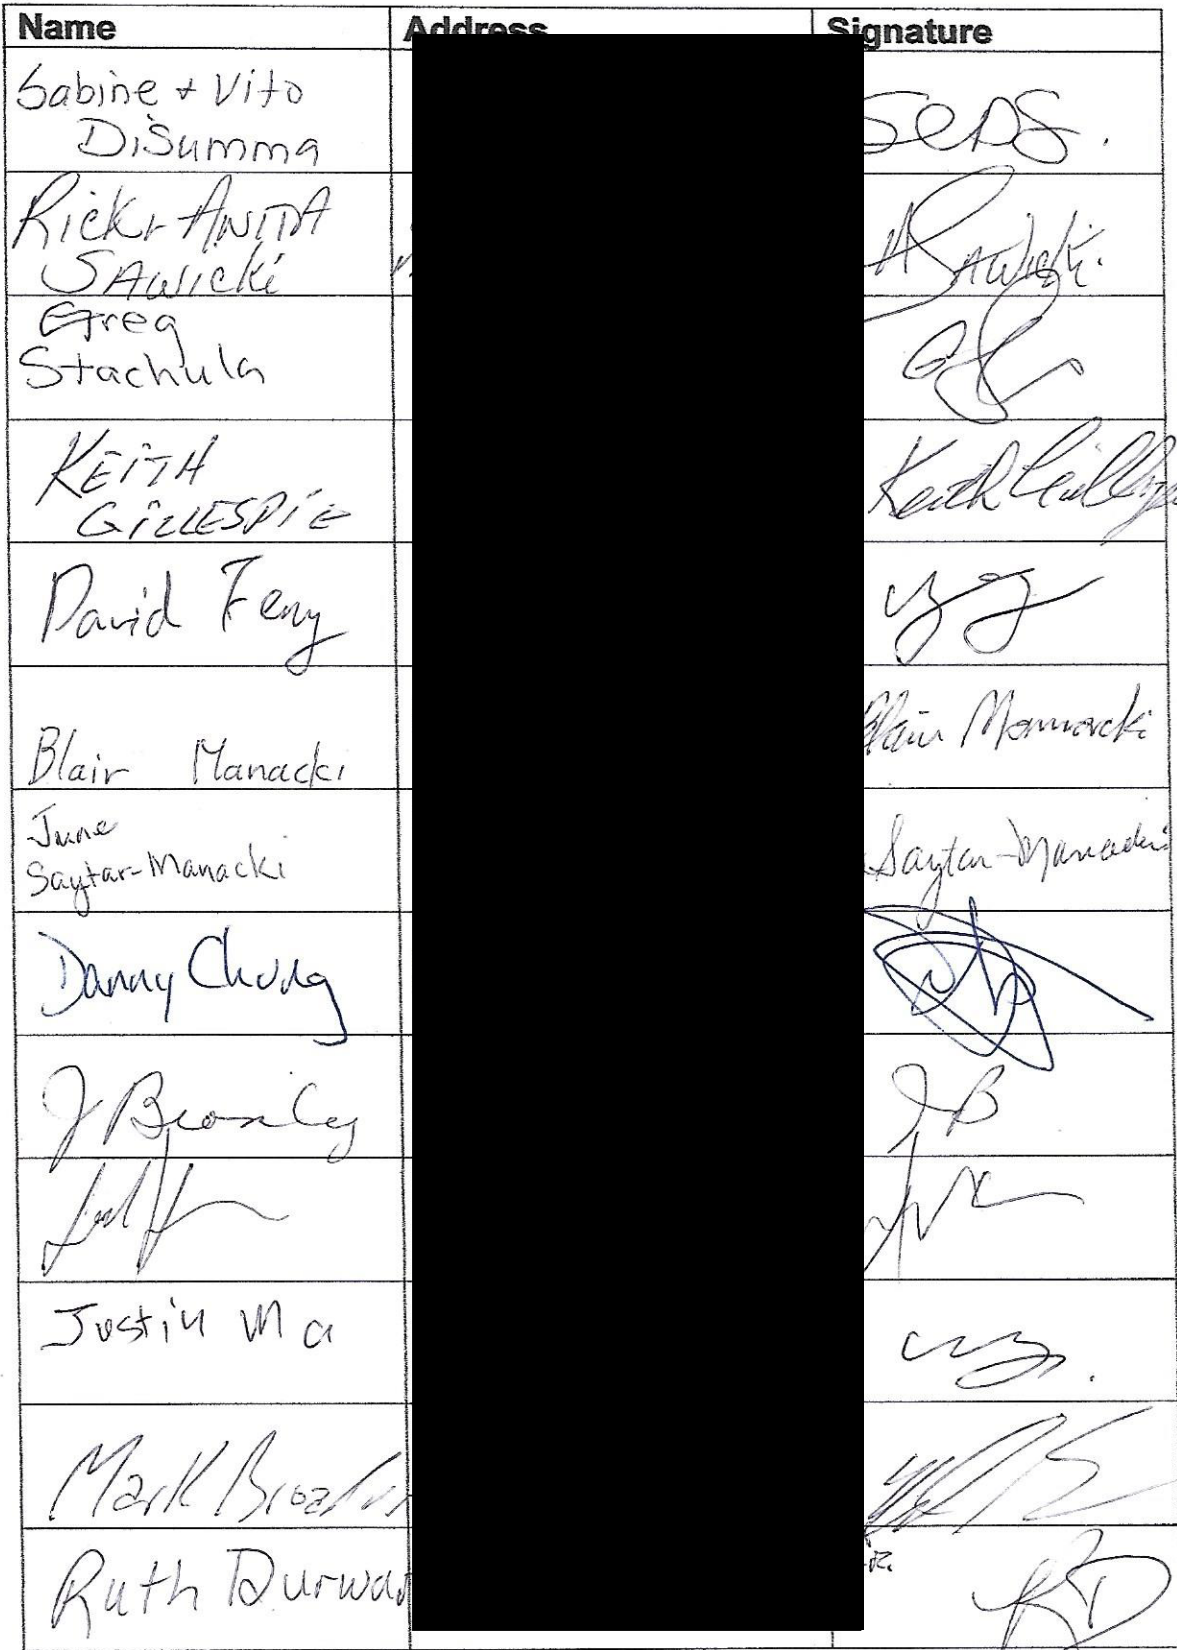 Name Address Signature
Sabine + Vito
DiSumma
Rick + ANITA
SAWICKI ASawicki.
Greg
Stachula
KEITH
GILLESPIE Keith Gillespie
David Feng
Blair Manacki Blair Manacki
June
Saytar-Manacki Saytar-Manacki
Danny Chung
J JB
Justin Ma
Mark
Ruth RD